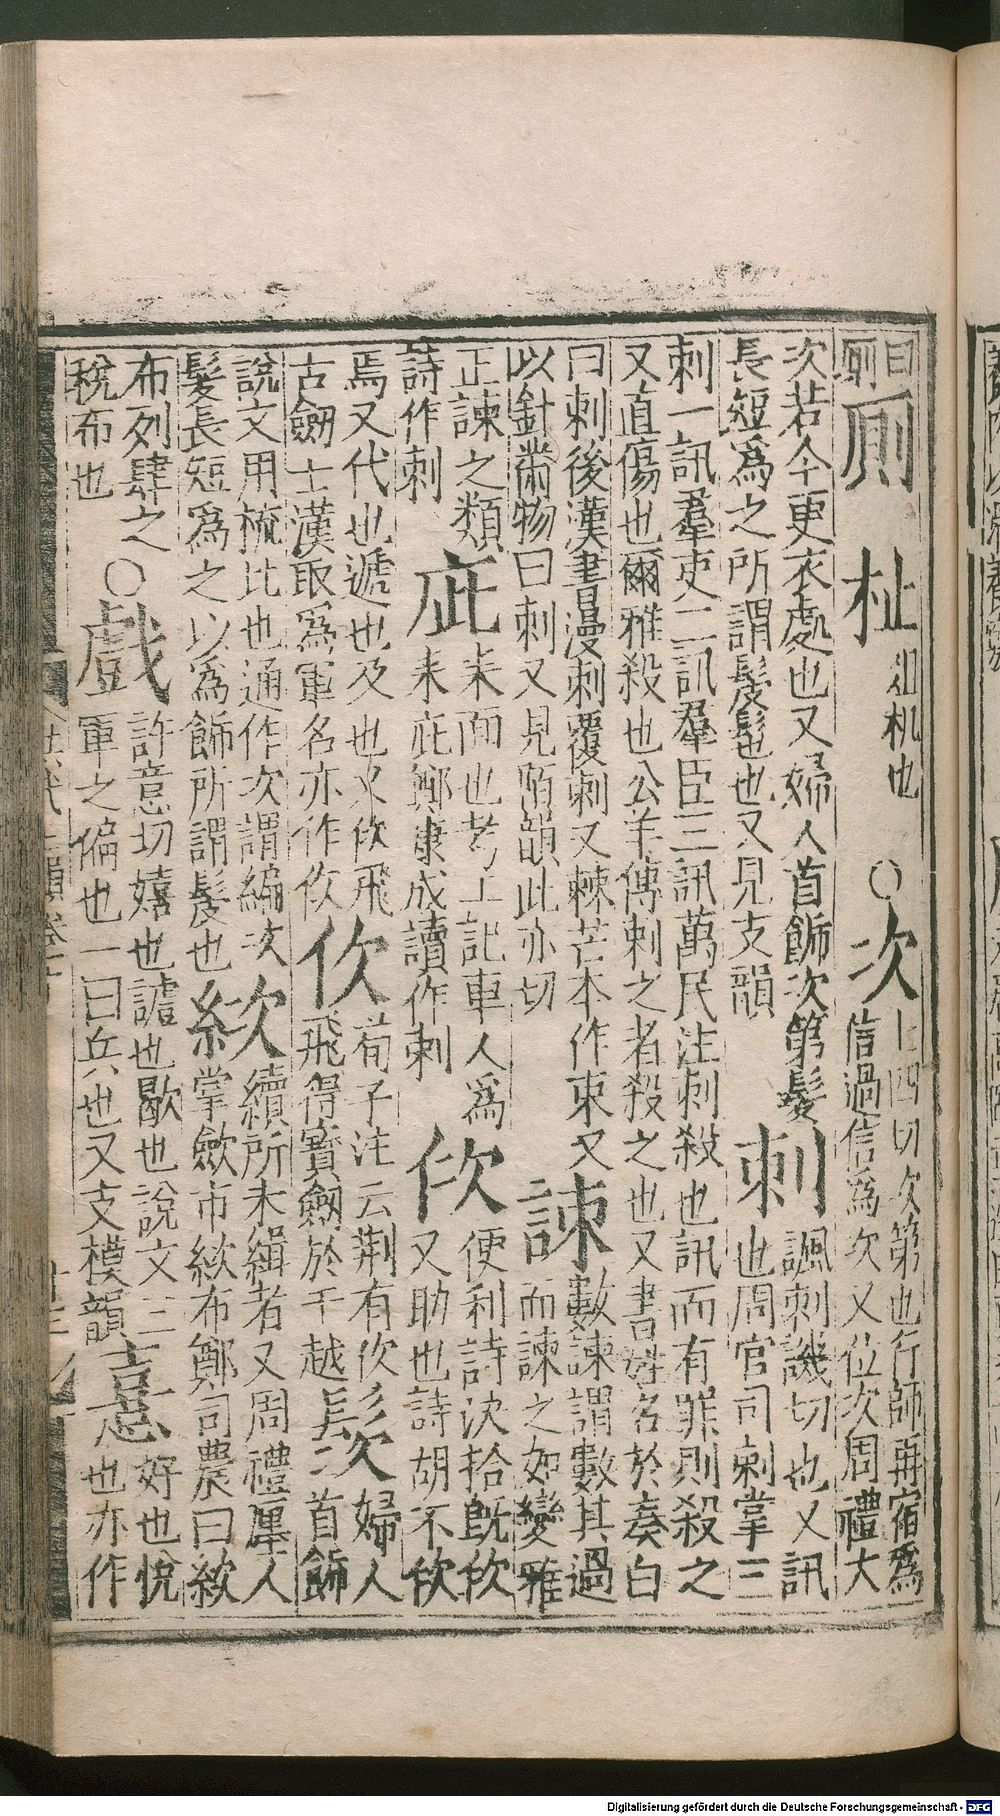 曰厠厠杫俎机也○次七四切次第也行師再宿爲信過信爲次又位次周禮大
次若今更衣處也又婦人首飾次第髮長短爲之所謂髲髢也又見支韻刺諷刺譏切也又訊也周官司刺掌三
刺一訊羣吏二訊羣臣三訊萬民注刺殺也訊而有罪則殺之
又直傷也爾雅殺也公羊傳刺之者殺之也又書姓名於奏白
曰刺後漢書漫刺覆刺又棘芒本作朿又以針黹物曰刺又見陌韻此亦切諫數諫謂數其過而諫之如變雅
正諫之類詩作刺庛耒面也考工記車人爲耒庛鄭康成讀作刺佽便利詩決拾旣佽又助也詩胡不佽
焉又代也遞也及也又佽飛古劒士漢取爲軍名亦作佽㐸荀子注云荆有佽飛得寶劒於干越䯸婦人首飾
說文用梳比也通作次謂編次髮長短爲之以爲飾所謂髲也絘續所未緝者又周禮廛人掌歛市絘布鄭司農曰絘
布列肆之稅布也○戲許意切嬉也謔也歇也說文三軍之偏也一曰兵也又支模韻憙好也悅也亦作
Digitalisierung gefördert durch die Deutsche Forschungsgemeinschaft - DFG